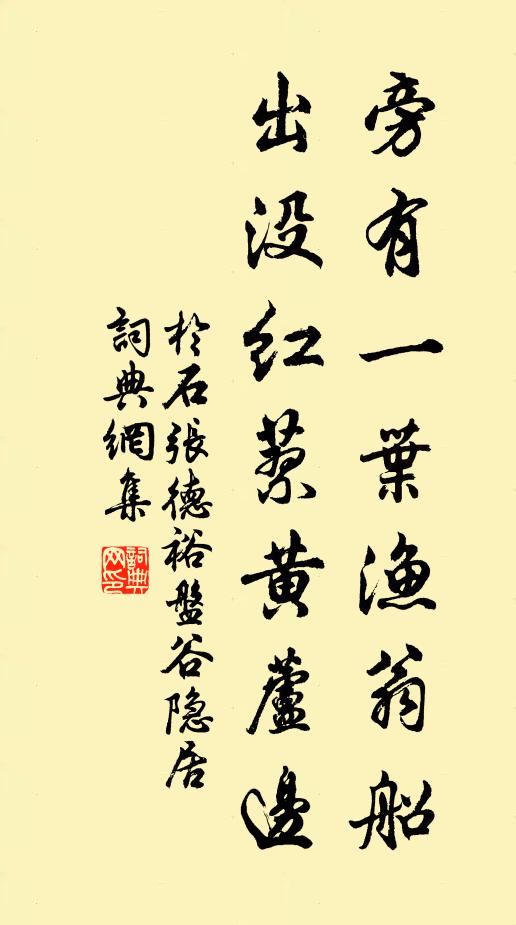 旁有一葉漁翁船
出没紅蓼黄蘆邊
於石張德裕盤谷隐居
詞典網集
詞典网印